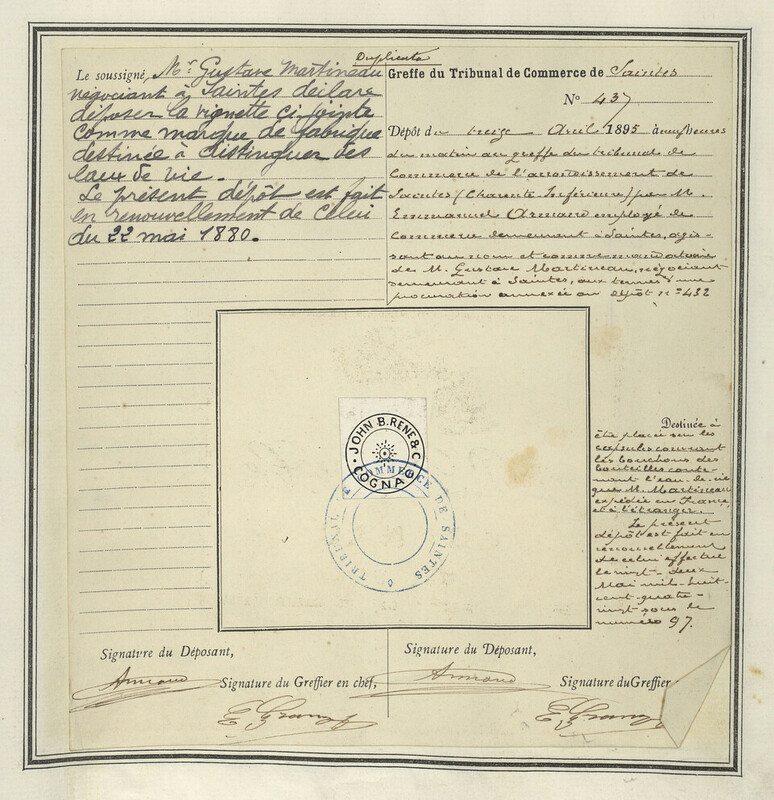 Duplicata
Le soussigné, Mr. Gustave Martineau
négociant à Saintes déclare
déposer la vignette ci-jointe
comme marque de fabrique
destinée à distinguer des
eaux de vie.
Le présent dépôt est fait
en renouvellement de celui
du 22 mai 1880.
Greffe du Tribunal de Commerce de Saintes
No 437
Dépôt du treize Avril 1895 à neuf heures
du matin au greffe du tribunal de
Commerce de l'arrondissement de
Saintes (Charente Inférieure) par M.
Emmanuel Armand employé de
Commerce demeurant à Saintes, agis-
sant au nom et comme mandataire
de M. Gustave Martineau, négociant
demeurant à Saintes, aux termes d'une
procuration annexée au dépôt no 432
JOHN B. RENE & C
COGNAC
TRIBUNAL DE COMMERCE DE SAINTES
Destinée à
être placée sur les
capsules couvrant
les bouchons des
bouteilles conte-
nant l'eau-de-vie
que M. Martineau
expédie en France
et à l'étranger.
Le présent
dépôt est fait en
renouvellement
de celui effectué
le vingt-deux
Mai mil-huit-
cent-quatre-
vingt sous le
numéro 97.
Signature du Déposant,
Armand
Signature du Greffier en chef,
Signature du Déposant,
Armand
Signature du Greffier